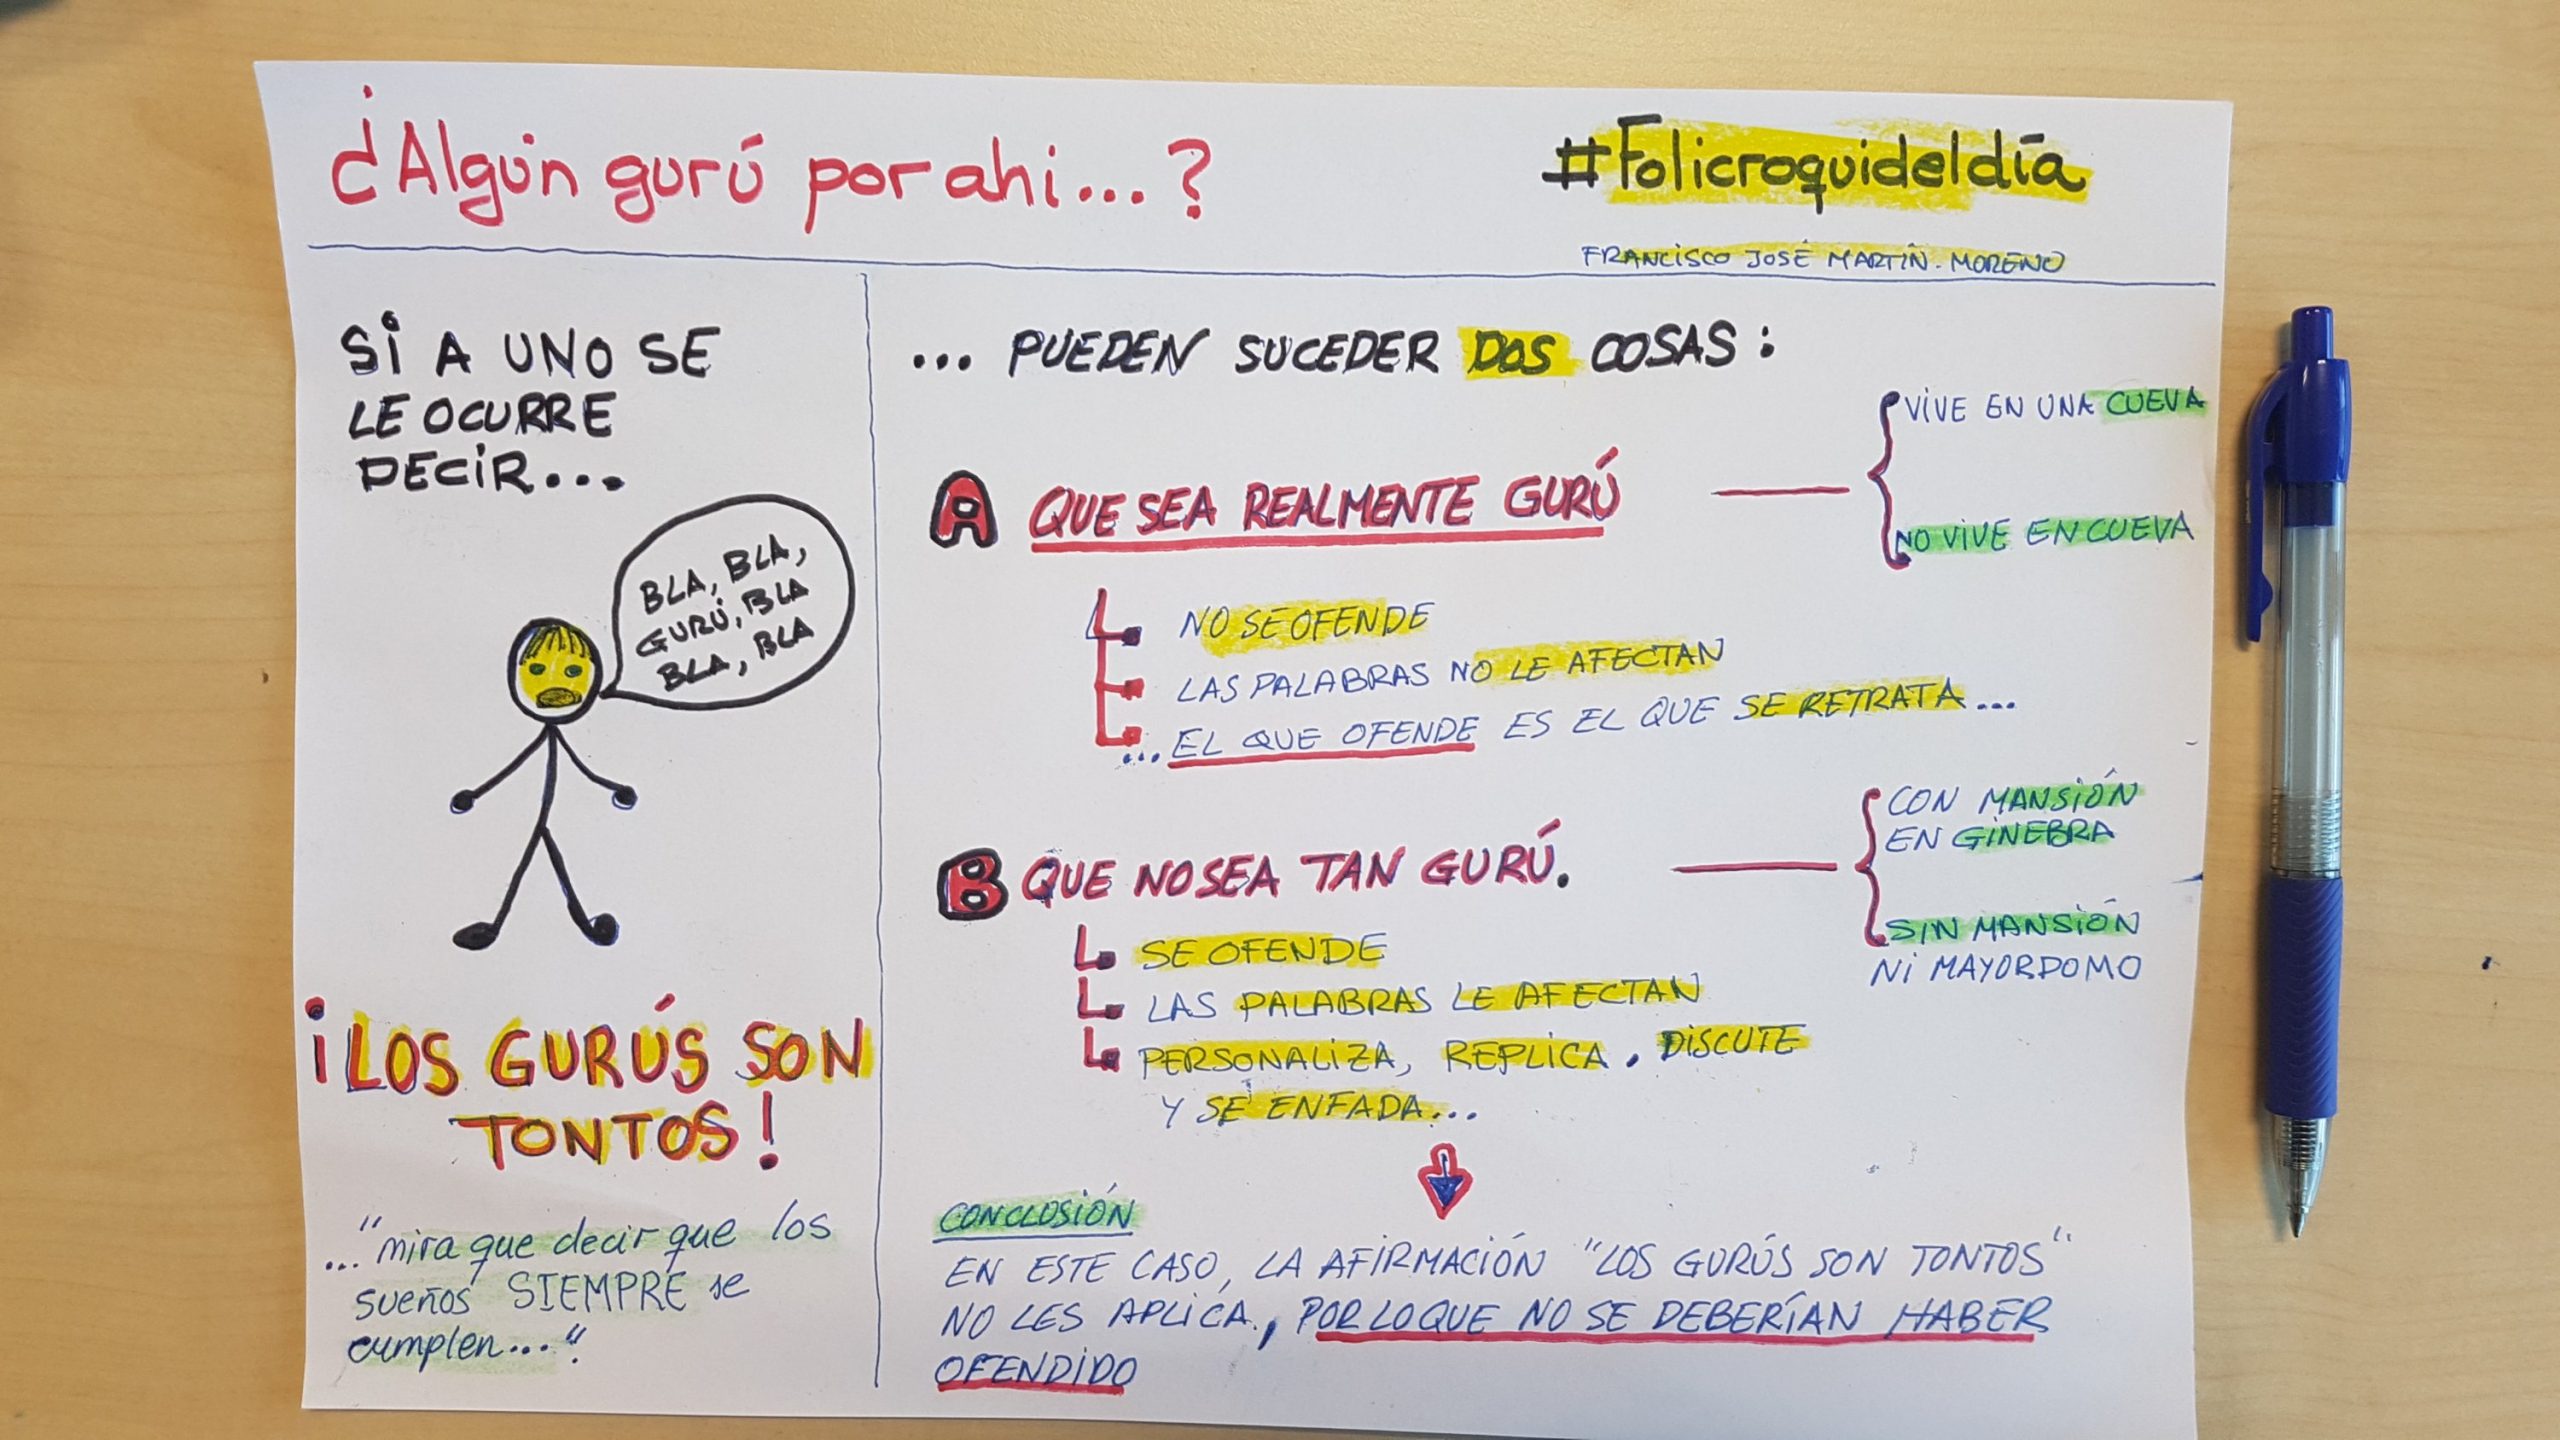 ¿Algún gurú por ahi...?
#Folicroquideldía
FRANCISCO JOSÉ MARTÍN-MORENO
SI A UNO SE
LE OCURRE
DECIR...
BLA, BLA,
GURÚ, BLA
BLA, BLA
¡LOS GURÚS SON
TONTOS!
..."mira que decir que los
sueños SIEMPRE se
cumplen..."
... PUEDEN SUCEDER DOS COSAS:
A QUE SEA REALMENTE GURÚ
VIVE EN UNA CUEVA
NO VIVE EN CUEVA
NO SE OFENDE
LAS PALABRAS NO LE AFECTAN
...EL QUE OFENDE ES EL QUE SE RETRATA...
B QUE NO SEA TAN GURÚ.
CON MANSIÓN
EN GINEBRA
SIN MANSIÓN
NI MAYORDOMO
SE OFENDE
LAS PALABRAS LE AFECTAN
PERSONALIZA, REPLICA, DISCUTE
Y SE ENFADA...
CONCLUSIÓN
EN ESTE CASO, LA AFIRMACIÓN "LOS GURÚS SON TONTOS"
NO LES APLICA, POR LO QUE NO SE DEBERÍAN HABER
OFENDIDO